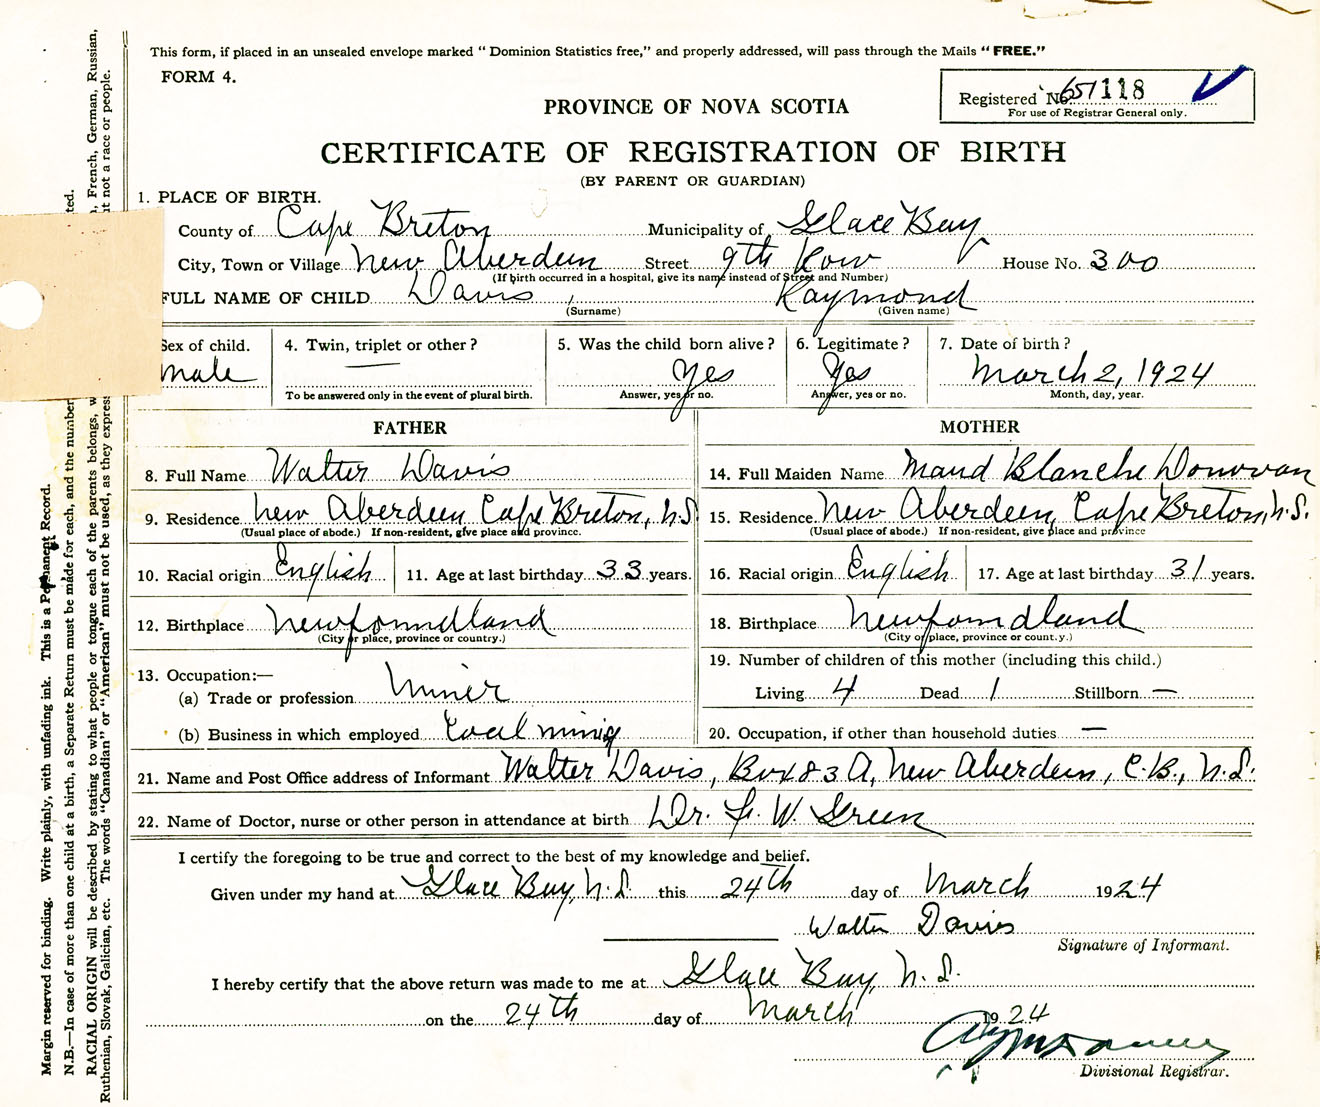 This form, if placed in an unsealed envelope marked "Dominion Statistics free," and properly addressed, will pass through the Mails "FREE."
FORM 4.
Registered No. 118
For use of Registrar General only.
PROVINCE OF NOVA SCOTIA
CERTIFICATE OF REGISTRATION OF BIRTH
(BY PARENT OR GUARDIAN)
1. PLACE OF BIRTH.
County of Cape Breton Municipality of Glace Bay
City, Town or Village New Aberdeen Street 9th Row House No. 300
(If birth occurred in a hospital, give its name instead of Street and Number)
FULL NAME OF CHILD Davis, Raymond
(Surname) (Given name)
Sex of child. 4. Twin, triplet or other? 5. Was the child born alive? 6. Legitimate? 7. Date of birth?
male — Yes Yes March 2, 1924
To be answered only in the event of plural birth. Answer, yes or no. Answer, yes or no. Month, day, year.
FATHER MOTHER
8. Full Name Walter Davis 14. Full Maiden Name Maud Blanche Donovan
9. Residence New Aberdeen, Cape Breton, N.S. 15. Residence New Aberdeen, Cape Breton, N.S.
(Usual place of abode.) If non-resident, give place and province. (Usual place of abode.) If non-resident, give place and province
10. Racial origin English 11. Age at last birthday 33 years. 16. Racial origin English 17. Age at last birthday 31 years.
12. Birthplace Newfoundland 18. Birthplace Newfoundland
(City or place, province or country.) (City or place, province or count.y.)
19. Number of children of this mother (including this child.)
13. Occupation:—
(a) Trade or profession Miner Living 4 Dead 1 Stillborn —
(b) Business in which employed Coal mining 20. Occupation, if other than household duties —
21. Name and Post Office address of Informant Walter Davis, Box 83 A, New Aberdeen, C.B., N.S.
22. Name of Doctor, nurse or other person in attendance at birth Dr. F. W. Green
I certify the foregoing to be true and correct to the best of my knowledge and belief.
Given under my hand at Glace Bay, N.S. this 24th day of March 1924
Walter Davis
Signature of Informant.
I hereby certify that the above return was made to me at Glace Bay, N.S.
on the 24th day of March 1924
Divisional Registrar.
Margin reserved for binding. Write plainly, with unfading ink. This is a Permanent Record.
N.B.—In case of more than one child at a birth, a Separate Return must be made for each, and the number
RACIAL ORIGIN will be described by stating to what people or tongue each of the parents belongs, French, German, Russian,
Ruthenian, Slovak, Galician, etc. The words "Canadian" or "American" must not be used, as they express not a race or people.